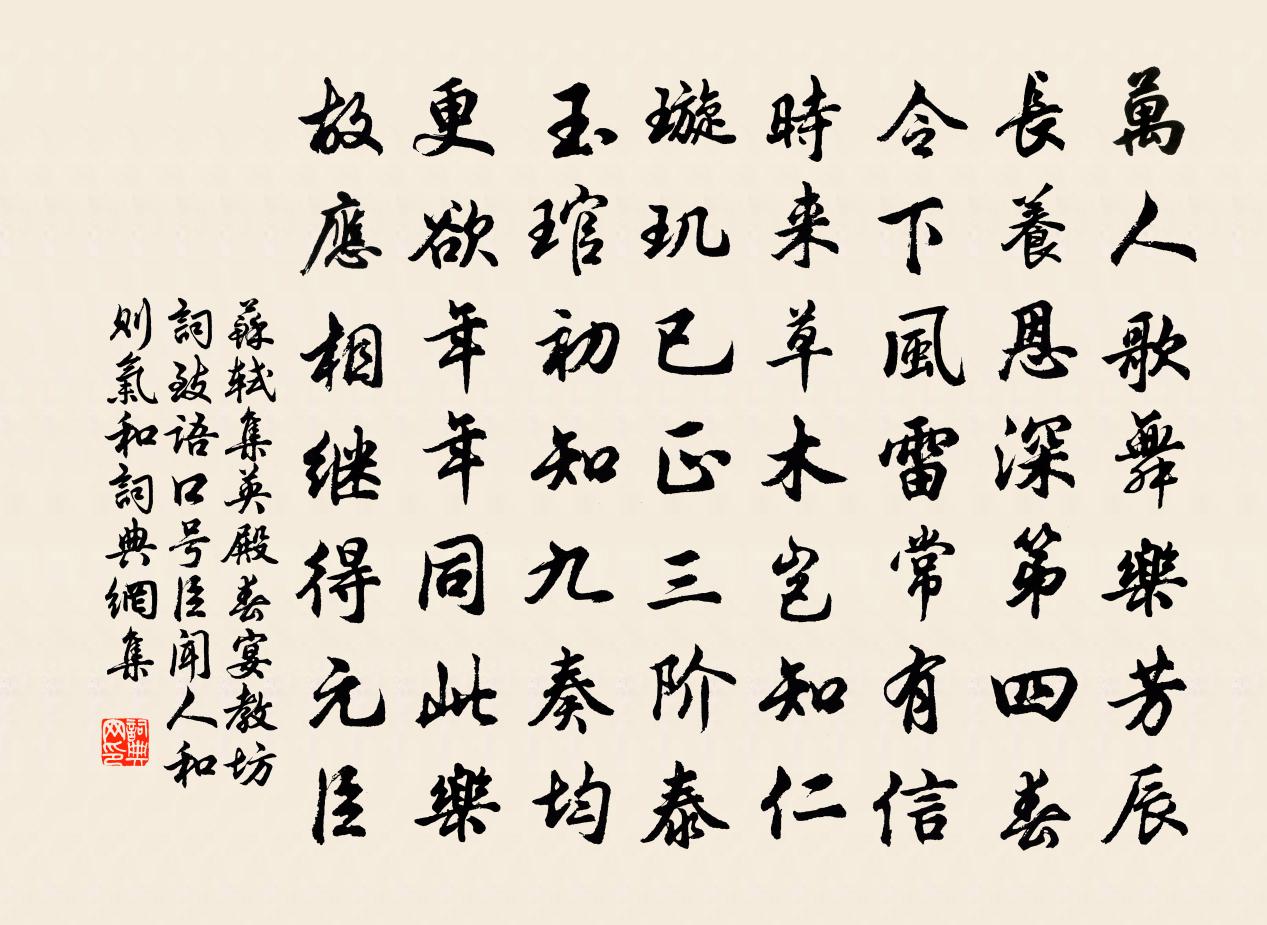 萬人歌舞樂芳辰
長養恩深第四春
令下風雷常有信
時来草木岂知仁
璇玑已正三阶泰
玉琯初知九奏均
更欲年年同此樂
故應相继得元臣
蘇轼集英殿春宴教坊
詞致語口号臣聞人和
则氣和詞典網集
詞典网印